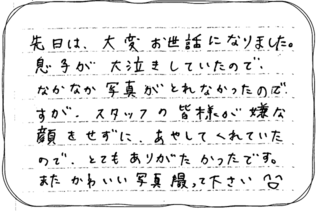 先日は、大変お世話になりました。
息子が大泣きしていたので、
なかなか写真がとれなかったので
すが、スタッフの皆様が嫌な
顔をせずに、あやしてくれていた
ので、とてもありがたかったです。
またかわいい写真撮って下さい